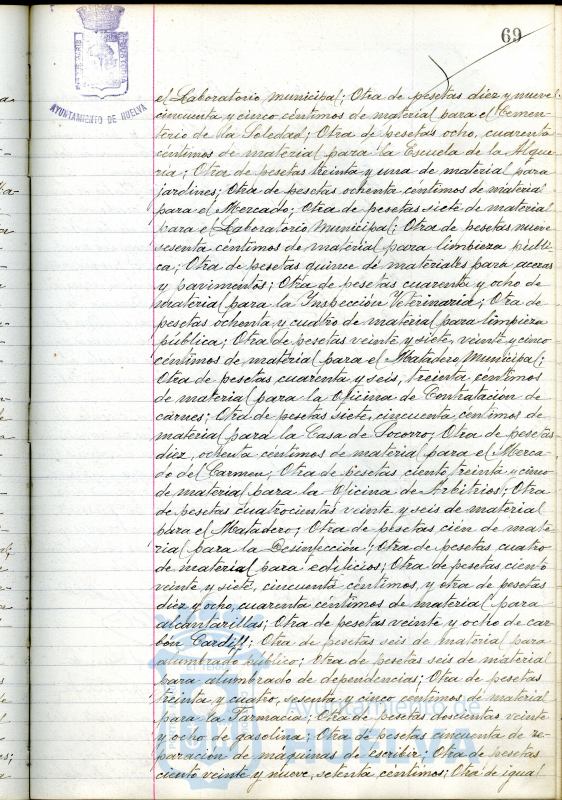 69
AYUNTAMIENTO DE HUELVA
el Laboratorio municipal; Otra de pesetas diez y nueve
cincuenta y cinco céntimos de material para el Cemen-
terio de la Soledad; Otra de pesetas ocho, cuarenta
céntimos de material para la Escuela de la Alque-
ria; Otra de pesetas treinta y una de material para
jardines; Otra de pesetas ochenta céntimos de material
para el Mercado; Otra de pesetas siete de material
para el Laboratorio Municipal; Otra de pesetas nueve
sesenta céntimos de material para limpieza públi-
ca; Otra de pesetas quince de materiales para aceras
y pavimentos; Otra de pesetas cuarenta y ocho de
material para la Inspección Veterinaria; Otra de
pesetas ochenta y cuatro de material para limpieza
pública; Otra de pesetas veinte y siete, veinte y cinco
céntimos de material para el Matadero Municipal;
Otra de pesetas cuarenta y seis, treinta céntimos
de material para la Oficina de Contratación de
carnes; Otra de pesetas siete, cincuenta céntimos de
material para la Casa de Socorro; Otra de pesetas
diez, ochenta céntimos de material para el Merca-
do del Carmen; Otra de pesetas ciento treinta y cinco
de material para la Oficina de Arbitrios; Otra
de pesetas cuatrocientas veinte y seis de material
para el Matadero; Otra de pesetas cien de mate-
rial para la Desinfección; Otra de pesetas cuatro
de material para edificios; Otra de pesetas ciento
veinte y siete, cincuenta céntimos, y otra de pesetas
diez y ocho, cuarenta céntimos de material para
alcantarillas; Otra de pesetas veinte y ocho de car-
bón Cardiff; Otra de pesetas seis de material para
alumbrado público; Otra de pesetas seis de material
para alumbrado de dependencias; Otra de pesetas
treinta y cuatro, sesenta y cinco céntimos de material
para la Farmacia; Otra de pesetas doscientas veinte
y ocho de gasolina; Otra de pesetas cincuenta de re-
paracion de máquinas de escribir; Otra de pesetas
ciento veinte y nueve, setenta céntimos; Otra de igual
Ayuntamiento de
Huelva